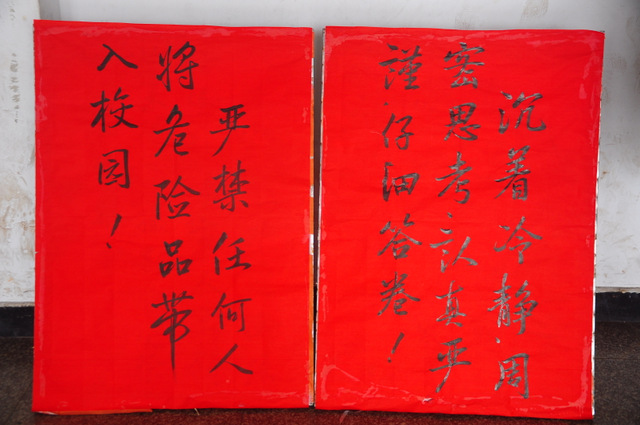 沉着冷静、周
密思考、认真严
谨、仔细答卷！
严禁任何人
将危险品带
入校园！